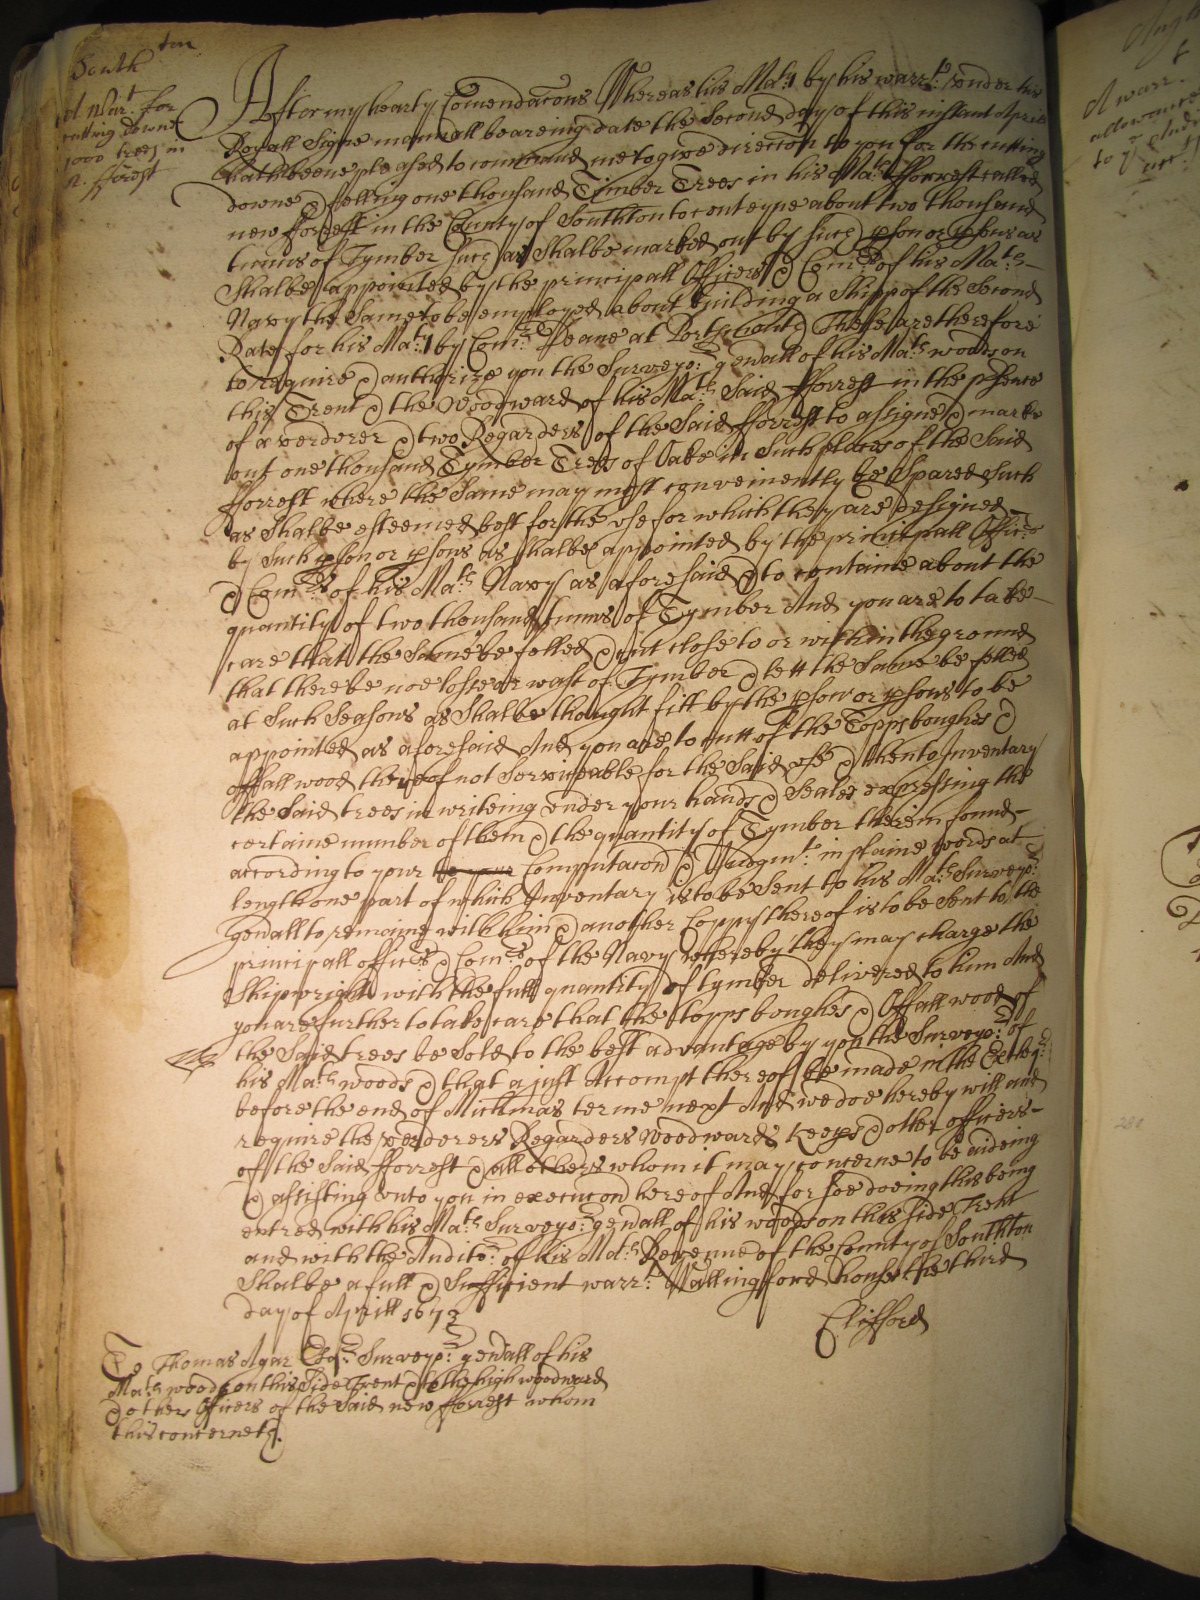 South ton
A Warrt for
cutting downe
1000 trees in
N. fforest
After my hearty Comendacons Whereas his Matie by his warrt under his
Royall Signe manuall beareing date the Second day of this instant Aprill
hath beene pleased to command me to give direccon to you for the cutting
downe & felling one thousand Timber Trees in his Mats fforrest called
new fforrest in the County of Southton to conteyne about two thousand
tunns of Tymber such as Shalbe marked out by such pson or psons as
Shalbe appointed by the principall Officers & Comrs of his Mats
Navy the Same to be employed about building a Shipp of the Second
Rate for his Matie by Comr Deane at Portsmouth These are therefore
to require & authorize you the Surveyor: genall of his Mats woods on
this Trent & the Woodward of his Mats Said fforrest in the psence
of a verderer & two Regarders of the Said fforrest to assigne & marke
out one thousand Tymber Trees of Oake in Such places of the Said
fforrest where the Same may most conveniently be Spared Such
as Shalbe esteemed best for the use for which they are designed
by Such pson or psons as Shalbe appointed by the principall Officrs
& Comrs of his Mats Navy as aforesaid & to containe about the
quantity of two thousand tunns of Tymber And you are to take
care that the Same be felled & cut close to or within the ground
that there be noe losse or wast of Tymber & lett the Same be felled
at Such Seasons as Shalbe thought fitt by the pson or psons to be
appointed as aforesaid And you are to cutt of the Topps boughes &
offall wood thereof not Serviceable for the Said use & then to Inventary
the Said trees in writeing under your hands & Seales expressing the
certaine number of them & the quantity of Tymber therein found
according to your Computacon & Judgmts in plaine words at
length one part of which Inventary is to be Sent to his Mats Surveyor:
genall to remaine with him & another Coppy thereof is to be Sent to the
principall officrs & Comrs of the Navy whereby they may charge the
Shipwright with the full quantity of tymber delivered to him And
you are further to take care that the topps boughes & Offall wood of
the Said trees be Sold to the best advantage by you the Surveyor: of
his Mats woods & that a just Accompt thereof be made in the Excheqr
before the end of Michmas terme next And we doe hereby will and
require the verderers Regarders Woodwards Keeps & other officers
of the Said fforrest & all others whom it may concerne to be aideing
& assisting unto you in execucon hereof And for soe doeing this being
entred with his Mats Surveyor: genall of his woods on this side Trent
and with the Auditor: of his Mats Revenue of the County of Southton
Shalbe a full & Sufficient warrt: Wallingford house the third
day of Aprill 1673
Clifford
To Thomas Agar Esqr: Surveyor: genall of his
Mats woods on this Side Trent & to the high woodward
& other Officers of the Said new fforrest whom
this concerneth.